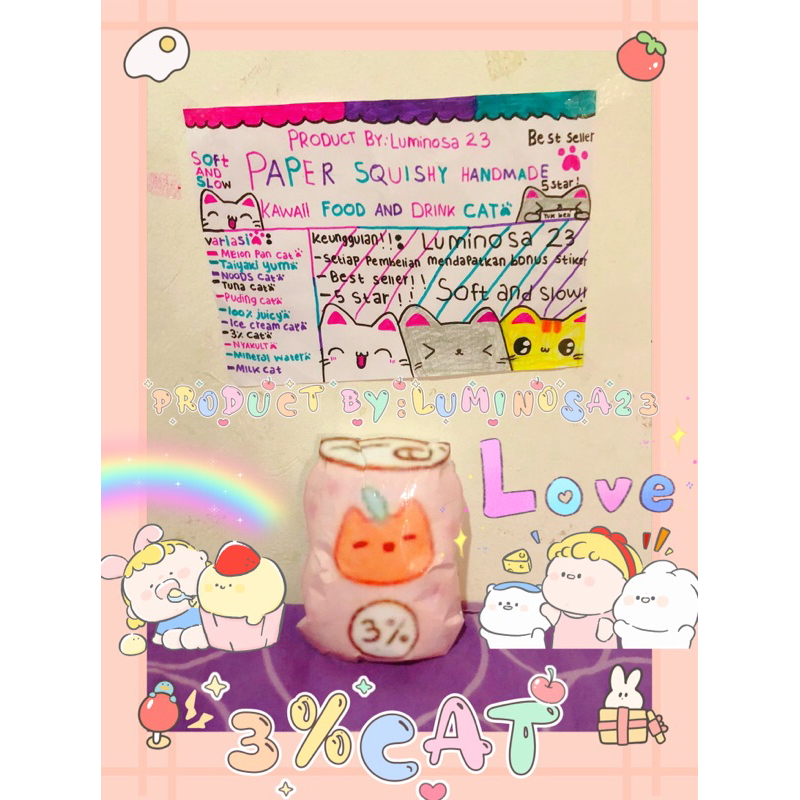 PRODUCT BY:Luminosa 23
Best seller
SOFt
AND
SLOW
PAPER SQUISHY HANDMADE
5 Star!
KAWAII FOOD AND DRINK CAT
variasi:
- Melon Pan cat
- Taiyaki yum
- NOODS cat
- Tuna cat
- Puding cat
- 100% juicy
- Ice cream cat
- 3% cat
- NYAKULT
- Mineral water
- MILK cat
keunggulan!!: Luminosa 23
- setiap Pembelian mendapatkan bonus stiker
- Best seller!!
- 5 star!! Soft and slow!
PRODUCT BY:LUMINOSA23
Love
3%
3%CAT